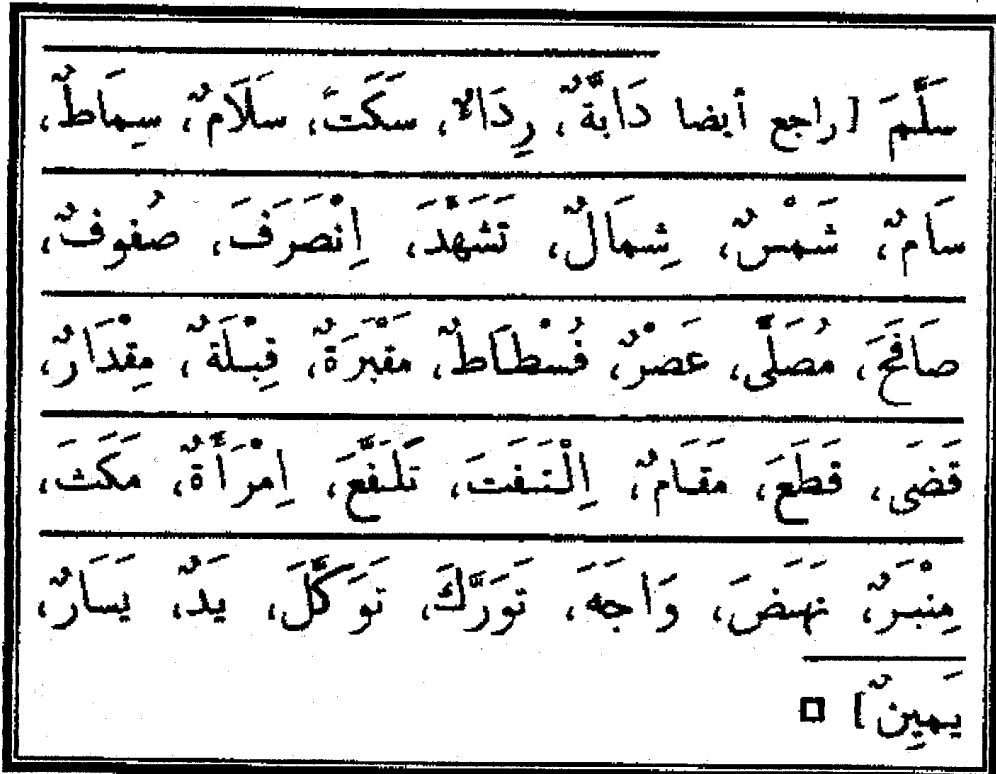 سَلَّمَ [راجع أيضا دَابَّةٌ، رِدَاءٌ، سَكَتَ، سَلَامٌ، سِمَاطٌ،
سَامٌ، شَمْسٌ، شِمَالٌ، تَشَهَّدَ، اِنْصَرَفَ، صُفوفٌ،
صَافَحَ، مُصَلًّى، عَصْرٌ، فُسْطَاطٌ، مَقْبَرَةٌ، قِبْلَةٌ، مِقْدَارٌ،
قَضَى، قَطَعَ، مَقَامٌ، اِلْتَفَتَ، تَلَفَّعَ، اِمْرَأَةٌ، مَكَثَ،
مِنْبَرٌ، نَهَضَ، وَاجَهَ، تَوَرَّكَ، تَوَكَّلَ، يَدٌ، يَسَارٌ،
يَمِينٌ]